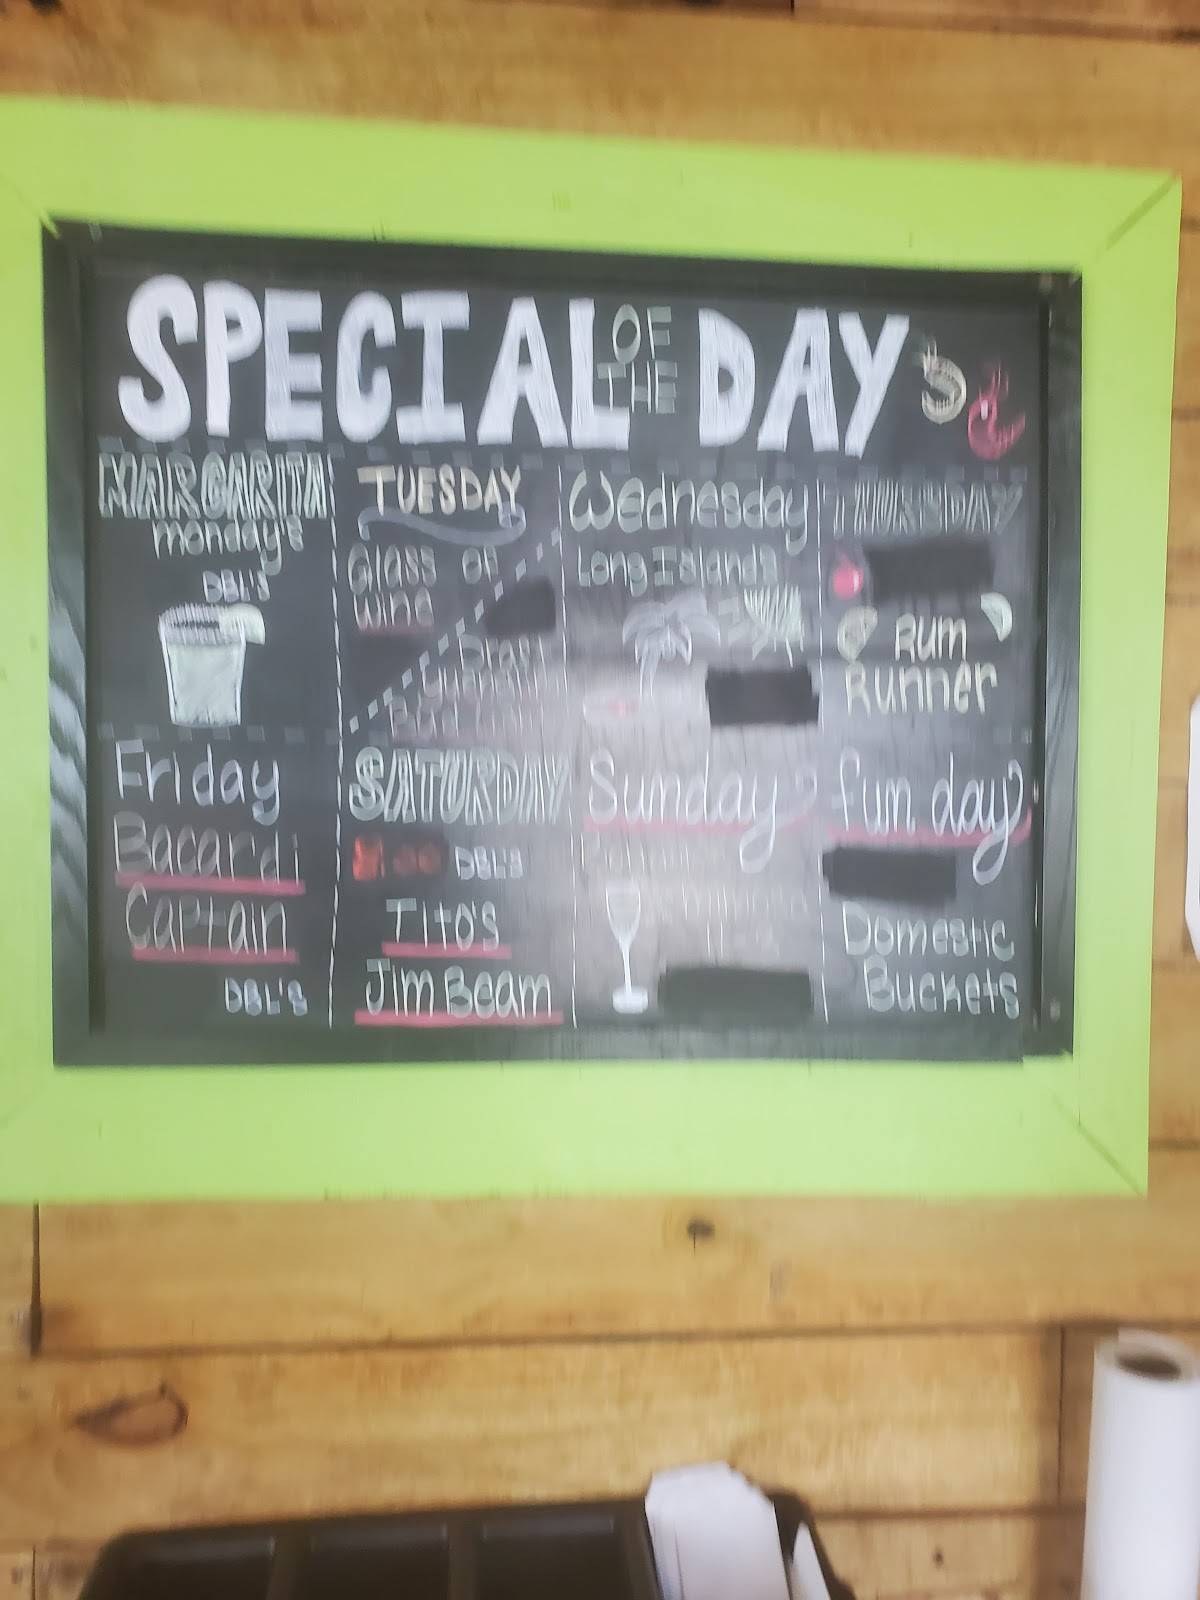 SPECIAL OF THE DAY
MARGARITA
monday's
DBL'S
TUESDAY
Glass of
Wine
Draft
Yuengling
Bud Light
Wednesday
Long Islands
THURSDAY
Rum
Runner
Friday
Bacardi
Captain
DBL'S
SATURDAY
DBL'S
Tito's
Jim Beam
Sunday funday
Domestic
Buckets